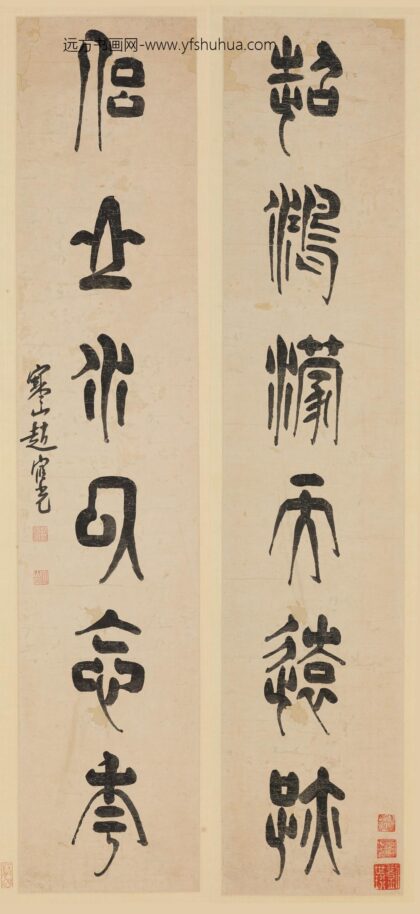 远方书画网-www.yfshuhua.com
超鴻濛而遠跡
侶山水以忘年
寒山趙宧光